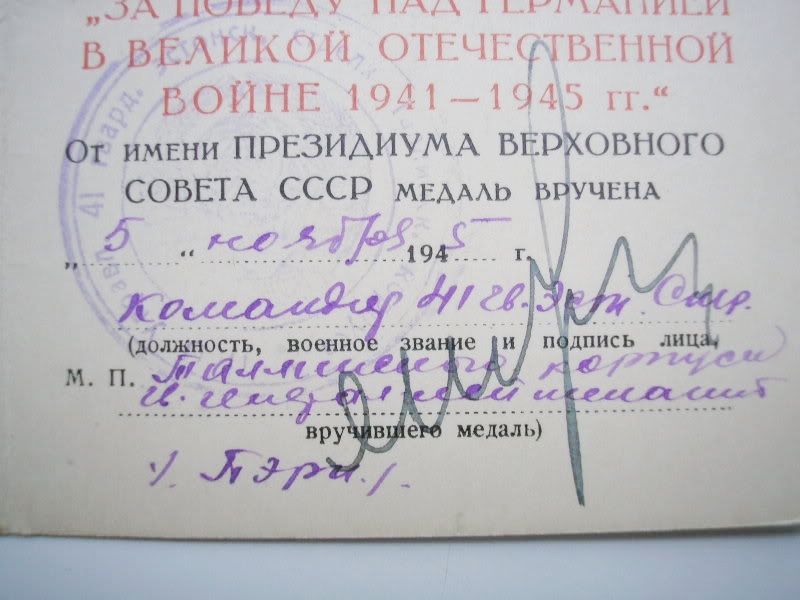 „ЗА ПОБЕДУ НАД ГЕРМАНИЕЙ
В ВЕЛИКОЙ ОТЕЧЕСТВЕННОЙ
ВОЙНЕ 1941—1945 гг.“
От имени ПРЕЗИДИУМА ВЕРХОВНОГО
СОВЕТА СССР МЕДАЛЬ ВРУЧЕНА
„5“ ноября 1945 г.
Командир 41 гв. Эст. Стр.
(должность, военное звание и подпись лица,
М. П. Таллинского корпуса
гв. генерал лейтенант
вручившего медаль)
/. Пэрн./.
41 гвард. эстонск.